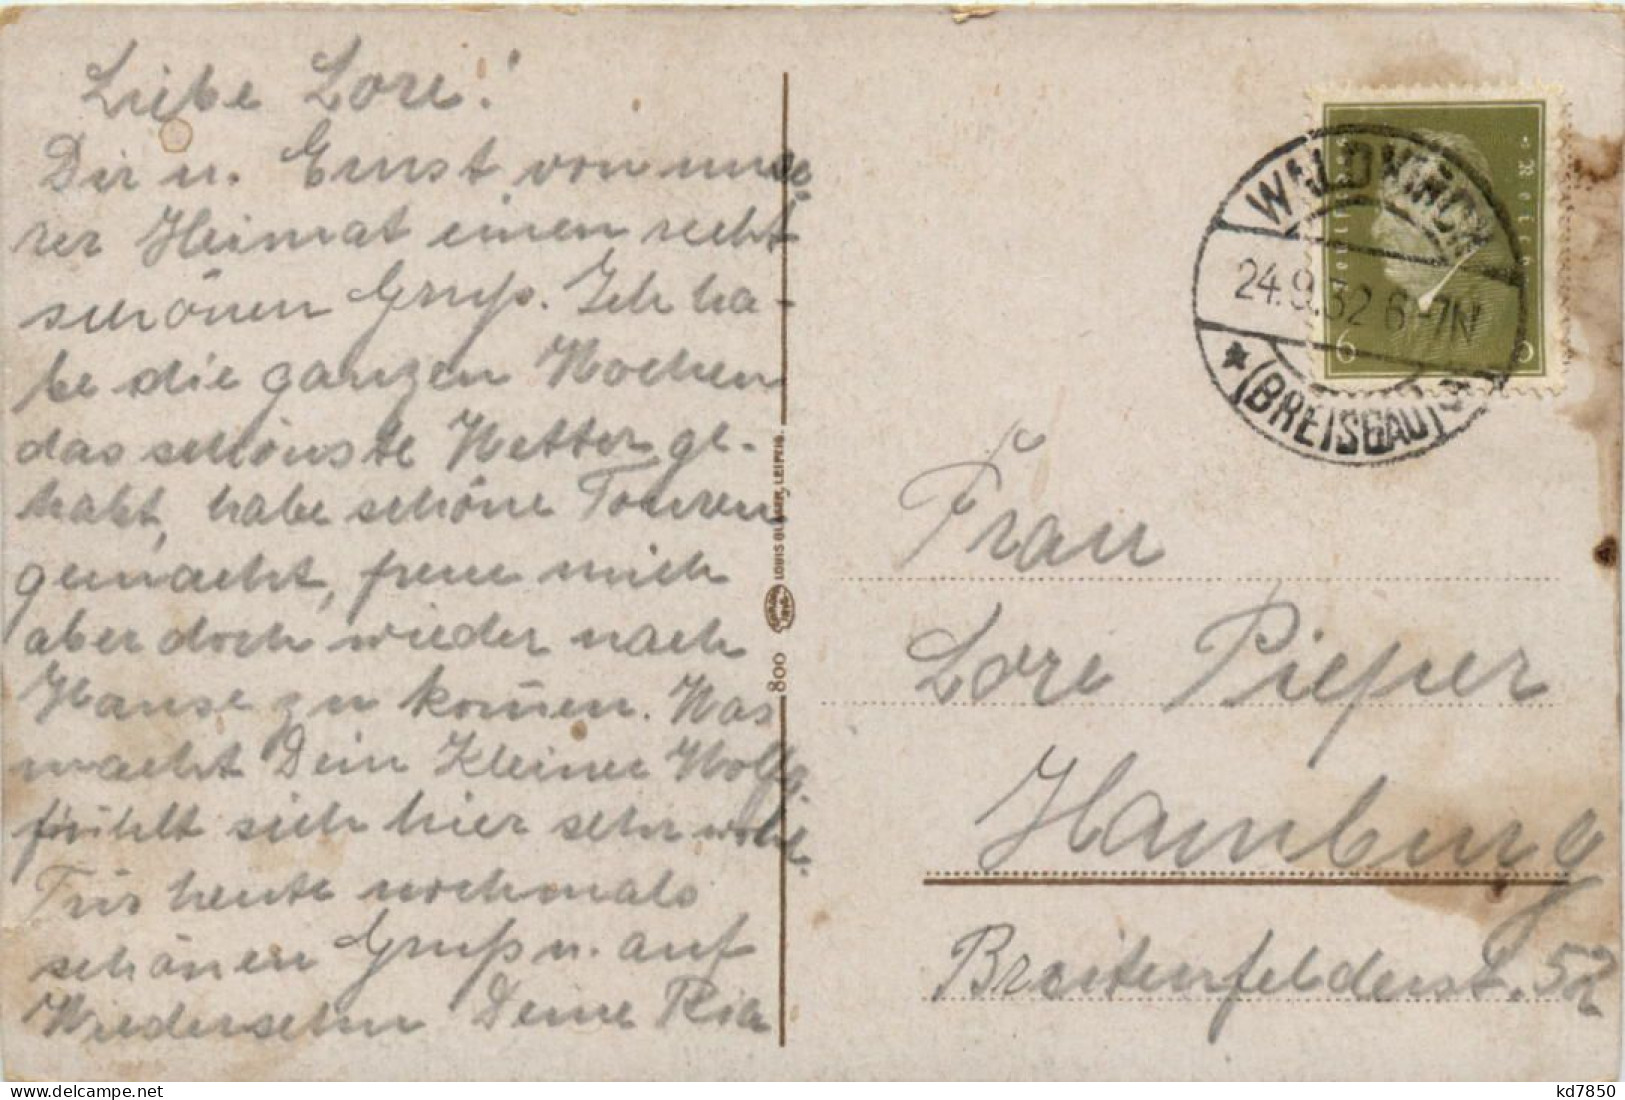 Liebe Lore!
Dir u. Ernst von unse-
rer Heimat einen recht
schönen Gruß. Ich ha-
be die ganzen Wochen
das schönste Wetter ge-
habt, habe schöne Touren
gemacht, freue mich
aber doch wieder nach
Hause zu kom̄en. Was
macht Dein Kleiner Wolfg.
fühlt sich hier sehr wohl.
Für heute nochmals
schönen Gruß u. auf
Wiedersehn Deine Ria
800
LOUIS GLASER, LEIPZIG.
Deutsches Reich
6 6
WALDKIRCH
24.9.32 6-7N
(BREISGAU)
Frau
Lore Pieper
Hamburg
Breitenfelderst. 52
kd7850